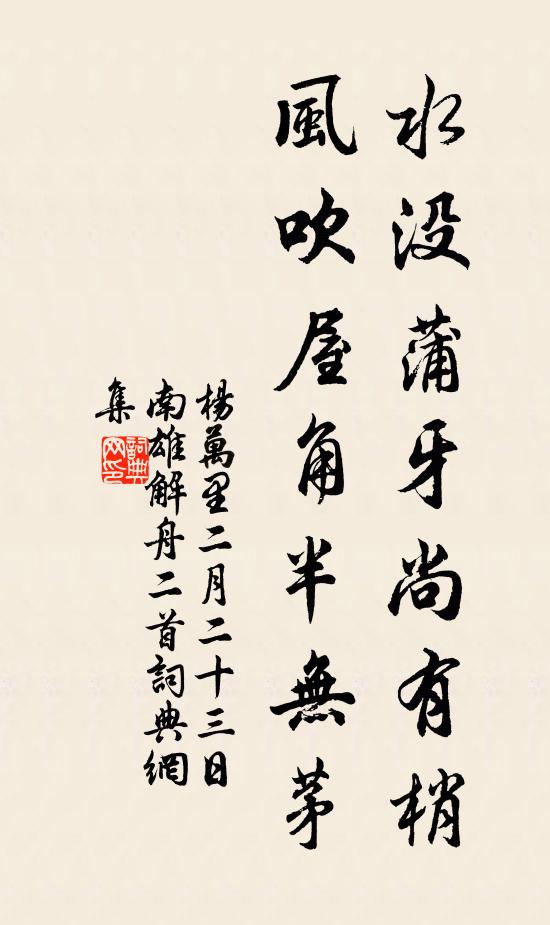 水没蒲牙尚有梢
風吹屋角半無茅
楊萬里二月二十三日
南雄解舟二首詞典網
集
詞典
网印